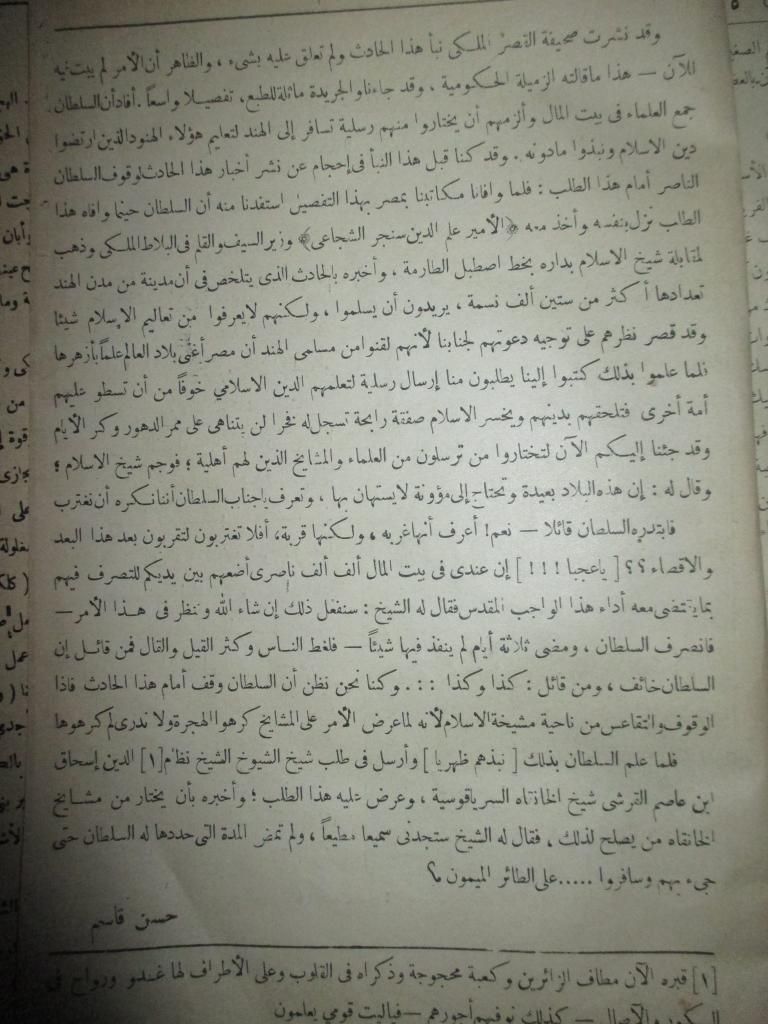 وقد نشرت صحيفة القصر الملكى نبأ هذا الحادث ولم تعلق عليه بشىء ، والظاهر أن الأمر لم يبت فيه
للآن — هذا ما قالته الزميلة الحكومية . وقد جاءنا والجريدة ماثلة للطبع، تفصيلا واسعاً . أفاد أن السلطان
جمع العلماء فى بيت المال وألزمهم أن يختاروا منهم رسلية تسافر إلى الهند لتعليم هؤلاء الهنود الذين ارتضوا
دين الاسلام ونبذوا مادونه . وقد كنا قبل هذا النبأ فى إحجام عن نشر أخبار هذا الحادث لوقوف السلطان
الناصر أمام هذا الطلب : فلما وافانا مكاتبنا بمصر بهذا التفصيل استفدنا منه أن السلطان حينما وافاه هذا
الطلب نزل بنفسه وأخذ معه ﴿الأمير علم الدين سنجر الشجاعى﴾ وزير السيف والقلم فى البلاط الملكى وذهب
لمقابلة شيخ الاسلام بداره بخط اصطبل الطارمة ، وأخبره بالحادث الذى يتلخص فى أن مدينة من مدن الهند
تعدادها أكثر من ستين ألف نسمة ، يريدون أن يسلموا ، ولكنهم لايعرفوا من تعاليم الإسلام شيئا
وقد قصر نظرهم على توجيه دعوتهم لجنابنا لأنهم لقنوا من مسلمى الهند أن مصر أغنى بلاد العالم علماً بأزهرها
فلما علموا بذلك كتبوا إلينا يطلبون منا إرسال رسلية لتعلمهم الدين الاسلامي خوفاً من أن تسطو عليهم
أمة أخرى فتلحقهم بدينهم ويخسر الاسلام صفقة رابحة تسجل له فخرا لن يتناهى على ممر الدهور وكر الأيام
وقد جئنا إليكم الآن لتختاروا من ترسلون من العلماء والمشايخ الذين لهم أهلية ؛ فوجم شيخ الاسلام ؛
وقال له : إن هذه البلاد بعيدة وتحتاج إلى مؤونة لايستهان بها ، وتعرف ياجناب السلطان أننا نكره أن نغترب
فابتدره السلطان قائلا — نعم! أعرف أنها غربه ، ولكنها قربة، أفلا تغتربون لتقربون بعد هذا البعد
والاقصاء ؟؟ [ ياعجبا ! ! ! ] إن عندى فى بيت المال ألف ألف ناصرى أضعهم بين يديكم للتصرف فيهم
بما يقتضى معه أداء هذا الواجب المقدس فقال له الشيخ : سنفعل ذلك إن شاء الله وننظر فى هذا الأمر —
فانصرف السلطان ، ومضى ثلاثة أيام لم ينفذ فيها شيئاً — فلغط الناس وكثر القيل والقال فمن قائل إن
السلطان خائف ، ومن قائل : كذا وكذا : : . وكنا نحن نظن أن السلطان وقف أمام هذا الحادث فاذا
الوقوف والتقاعس من ناحية مشيخة الاسلام لأنه لما عرض الأمر على المشايخ كرهوا الهجرة ولا ندرى لم كرهوها
فلما علم السلطان بذلك [ نبذهم ظهريا ] وأرسل فى طلب شيخ الشيوخ الشيخ نظام [١] الدين إسحاق
ابن عاصم القرشى شيخ الخانقاه السرياقوسية ، وعرض عليه هذا الطلب ؛ وأخبره بأن يختار من مشايخ
الخانقاه من يصلح لذلك ، فقال له الشيخ ستجدنى سميعا مطيعاً ، ولم تمض المدة التى حددها له السلطان حتى
جىء بهم وسافروا ..... على الطائر الميمون
حسن قاسم
[١] قبره الآن مطاف الزائرين وكعبة محجوجة وذكراه فى القلوب وعلى الأطراف لها غدو ورواح فى
البكور والآصال — كذلك نوفيهم أجورهم — فياليت قومي يعلمون